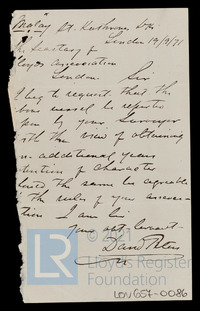 Malay St. Katharine Dks
London 19/9/71
The Secretary of
Lloyds Association
London. Sir
I beg to request that the
vessel be
by your Surveyor
with the view of obtaining
an additional years
of character
the same be agreeable
to the rules of your associa-
tion I am Sir
Your obt Servant
David
© 2021
LR
Lloyd's Register
Foundation
LON657-0086